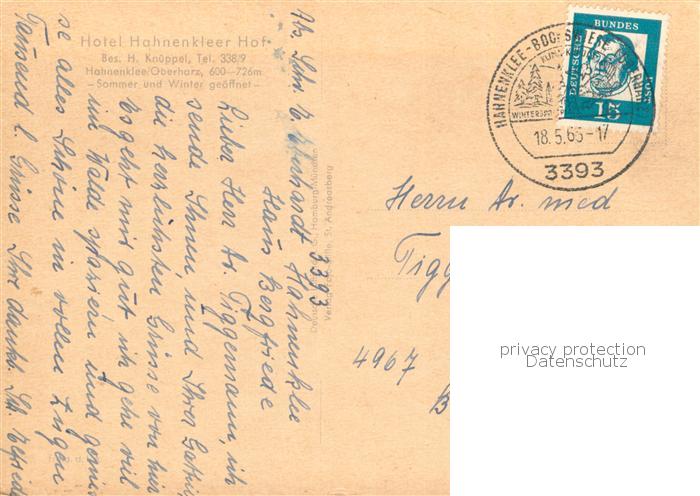 Hotel Hahnenkleer Hof
Bes. H. Knüppel, Tel. 338/9
Hahnenklee/Oberharz, 600–726m
– Sommer und Winter geöffnet –
Abs. Schr. Eberhardt Hahnenklee
Haus Bergfriede
3393
Lieber Herr Dr. Tiggemann, ich
sende Ihnen und Ihrer Gattin
die herzlichsten Grüsse von hier
Es geht mir gut ich gehe viel
im Walde spazieren und genies
se alles Schöne in vollen Zügen
Tausend l. Grüsse Ihr dankb. Schr.
HAHNENKLEE-BOCKSWIESE
WINTERSP
18.5.63-17
3393
DEUTSCHE BUNDES POST
15
Herrn Dr. med
Tigg
4967
B
privacy protection
Datenschutz